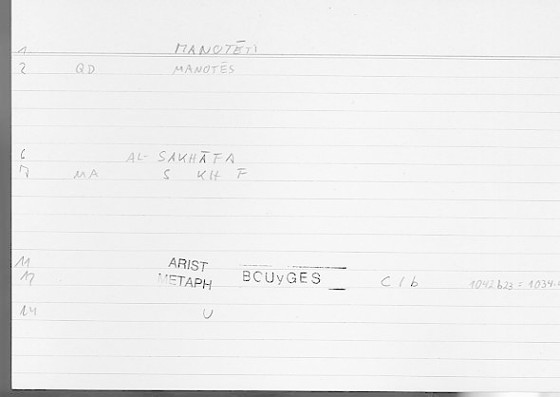 1 MANOTĒTI
2 QD MANOTĒS
6 AL- SAKHĀFA
7 MA S KH F
11 ARIST
12 METAPH BOUyGES C / b 1042b23 = 1034.
14 U